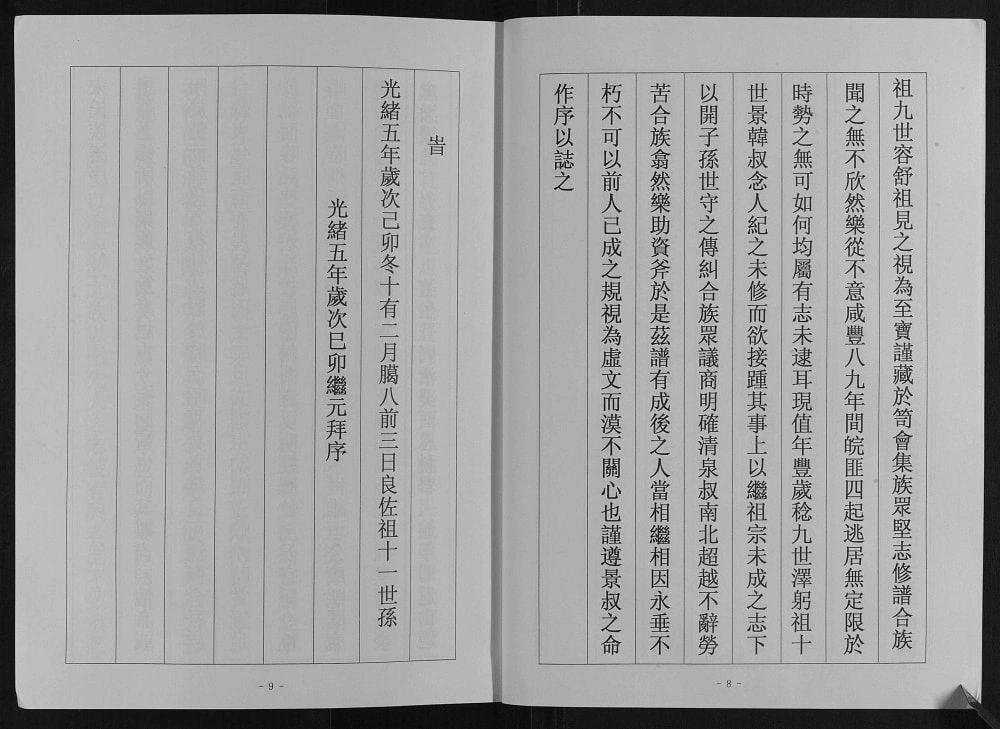 祖九世容舒祖見之視為至寶謹藏於笥會集族眾堅志修譜合族
聞之無不欣然樂從不意咸豐八九年間皖匪四起逃居無定限於
時勢之無可如何均屬有志未逮耳現值年豐歲稔九世澤躬祖十
世景韓叔念人紀之未修而欲接踵其事上以繼祖宗未成之志下
以開子孫世守之傳糾合族眾議商明確清泉叔南北超越不辭勞
苦合族翕然樂助資斧於是茲譜有成後之人當相繼相因永垂不
朽不可以前人已成之規視為虛文而漠不關心也謹遵景叔之命
作序以誌之
- 8 -
旹
光緒五年歲次己卯冬十有二月臈八前三日良佐祖十一世孫
光緒五年歲次巳卯繼元拜序
- 9 -